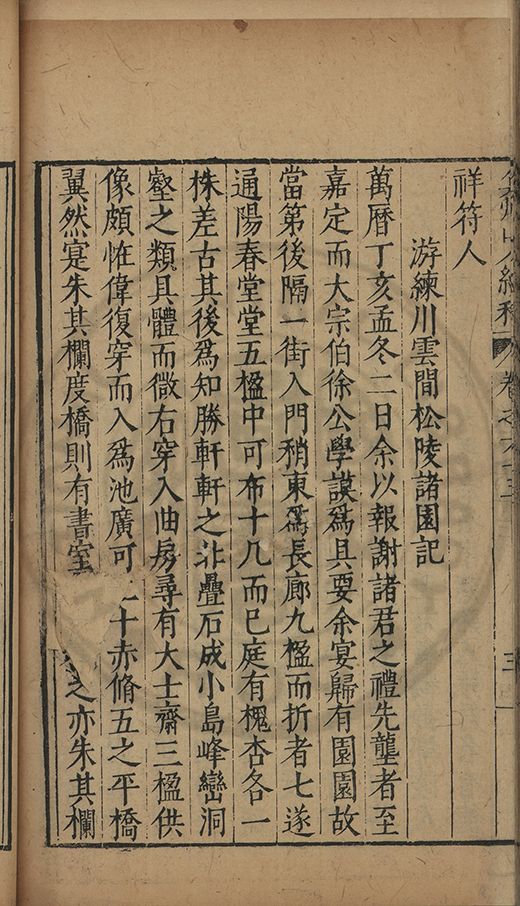 弇州山人續稿 卷之六十三 三
祥符人
游練川雲間松陵諸園記
萬曆丁亥孟冬二日余以報謝諸君之禮先壟者至
嘉定而大宗伯徐公學謨爲具要余宴歸有園園故
當第後隔一街入門稍東爲長廊九楹而折者七遂
通陽春堂堂五楹中可布十几而已庭有槐杏各一
株差古其後爲知勝軒軒之北疊石成小島峰巒洞
壑之類具體而微右穿入曲房尋有大士齋三楹供
像頗恠偉復穿而入爲池廣可十赤脩五之平橋
翼然寔朱其欄度橋則有書室之亦朱其欄